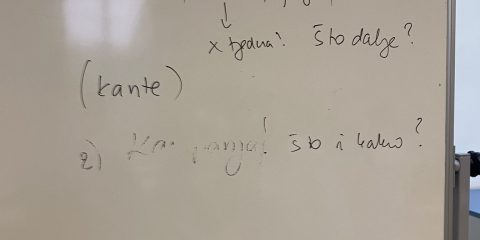 x tjedna! što dalje?
(kante)
2) Kampanja! što i kako?